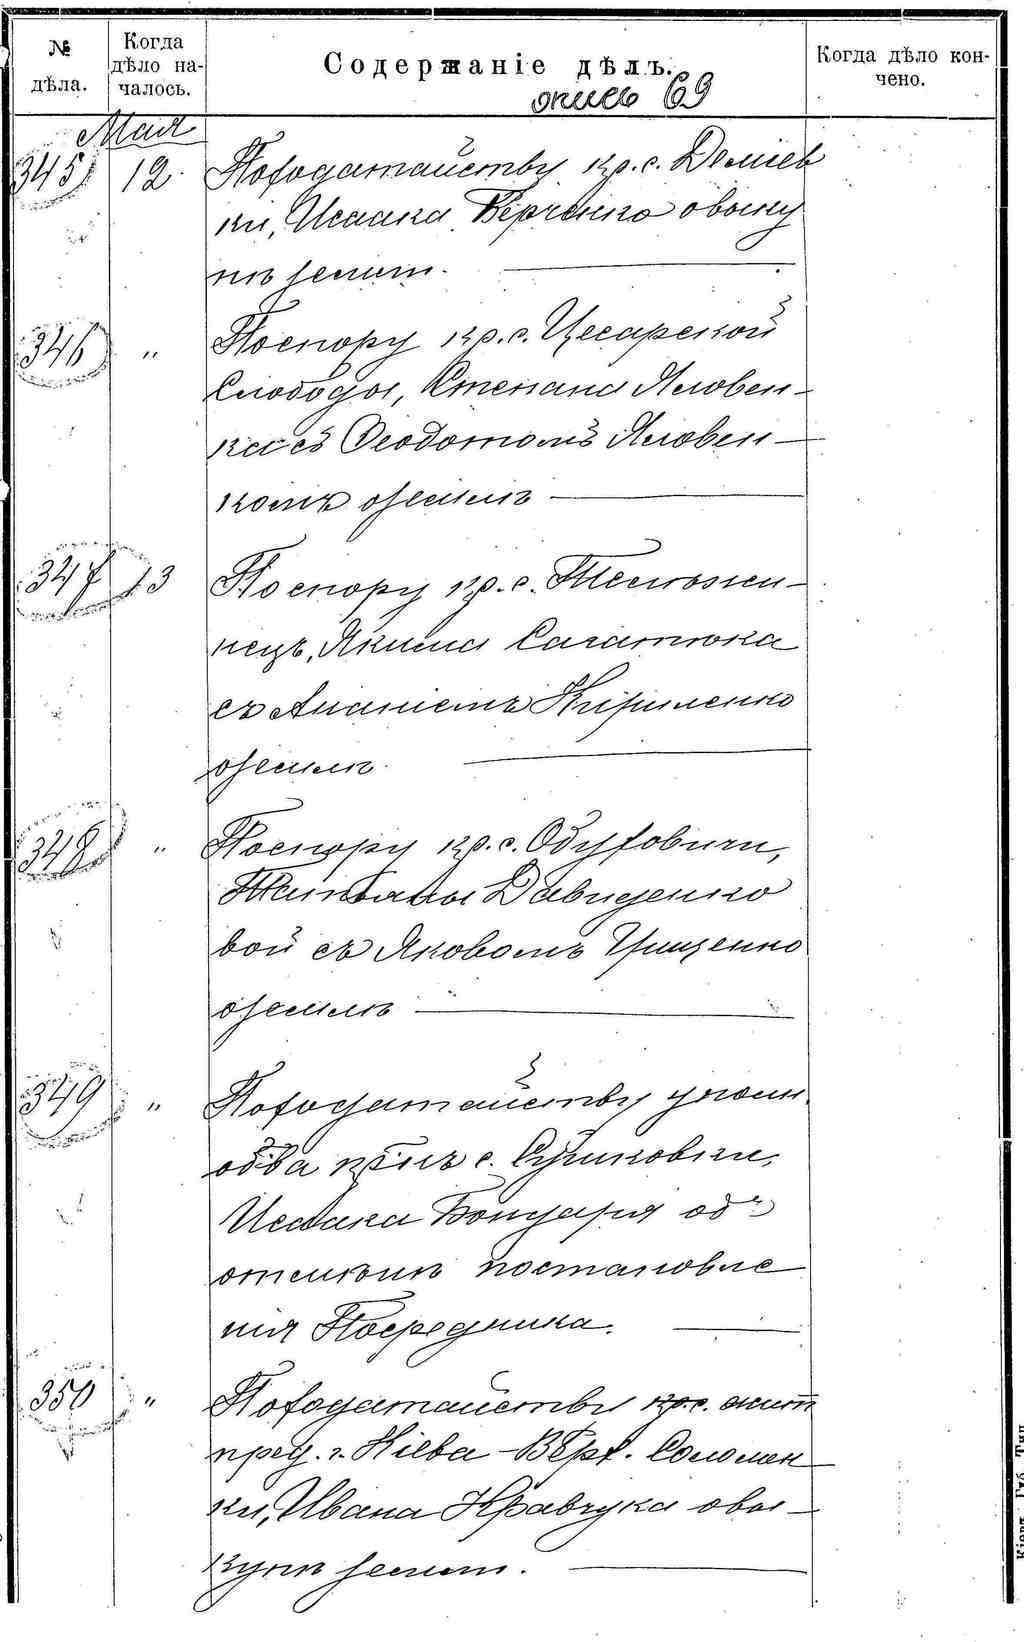 № дѣла.
Когда дѣло на-чалось.
Содержаніе дѣлъ.
Когда дѣло кон-чено.
опись 69
Мая
345 12. По ходатайству кр. с. Деміев
ки, Исаака Берченко о выку
пѣ земли.
346 " По спору кр. с. Цесарской
Слободы, Степана Яловен-
ка съ Феодотомъ Яловен-
комъ о землѣ
347 13 По спору кр. с. Телѣжи-
нецъ, Якима Сагатюка
съ Ананіемъ Кириленко
о землѣ.
348 " По спору кр. с.
Татьяны Давиденко
вой съ Яковомъ Грищенко
о землѣ
349 " По ходатайству
об-ва кр-нъ с. Сушковки,
Исаака Бондаря об
отмѣнѣ постановле
нія Посредника.
350 " По ходатайству кр. с. жит
пред. г. Кіева - Верх. Соломен
ки, Ивана Кравчука о вы-
купѣ земли.